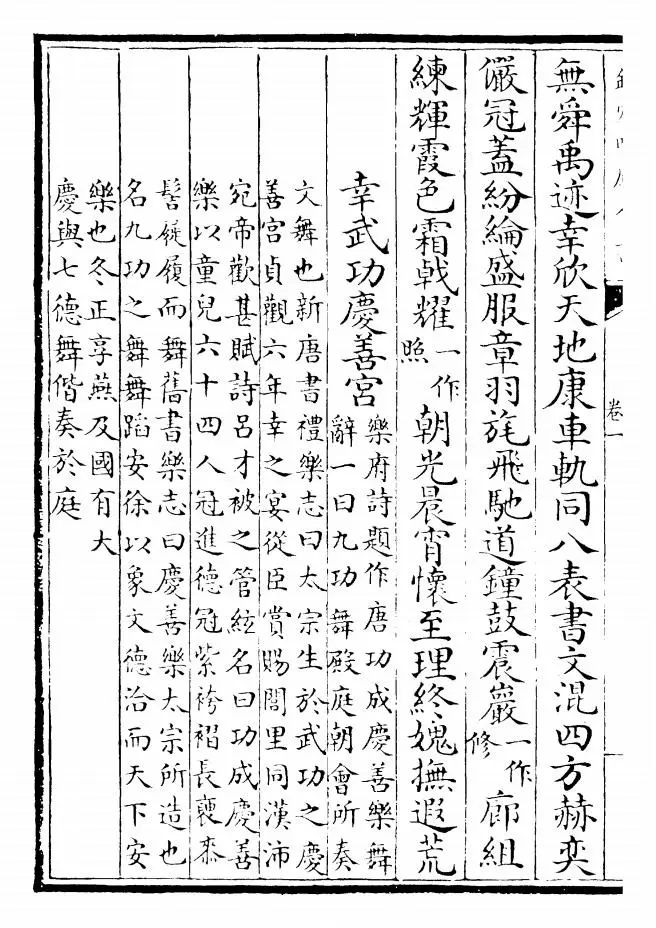 無舜禹迹幸欣天地康車軌同八表書文混四方赫奕
儼冠蓋紛綸盛服章羽旄飛馳道鐘鼓震巖一作修廊組
練輝霞色霜戟耀一作照朝光晨宵懷至理終媿撫遐荒
幸武功慶善宮
樂府詩題作唐功成慶善樂舞
辭一曰九功舞殿庭朝會所奏
文舞也新唐書禮樂志曰太宗生於武功之慶
善宮貞觀六年幸之宴從臣賞賜閭里同漢沛
宛帝歡甚賦詩呂才被之管絃名曰功成慶善
樂以童兒六十四人冠進德冠紫袴褶長褏桼
髻屣履而舞舊書樂志曰慶善樂太宗所造也
名九功之舞舞蹈安徐以象文德洽而天下安
樂也冬正享燕及國有大
慶與七德舞偕奏於庭
卷一